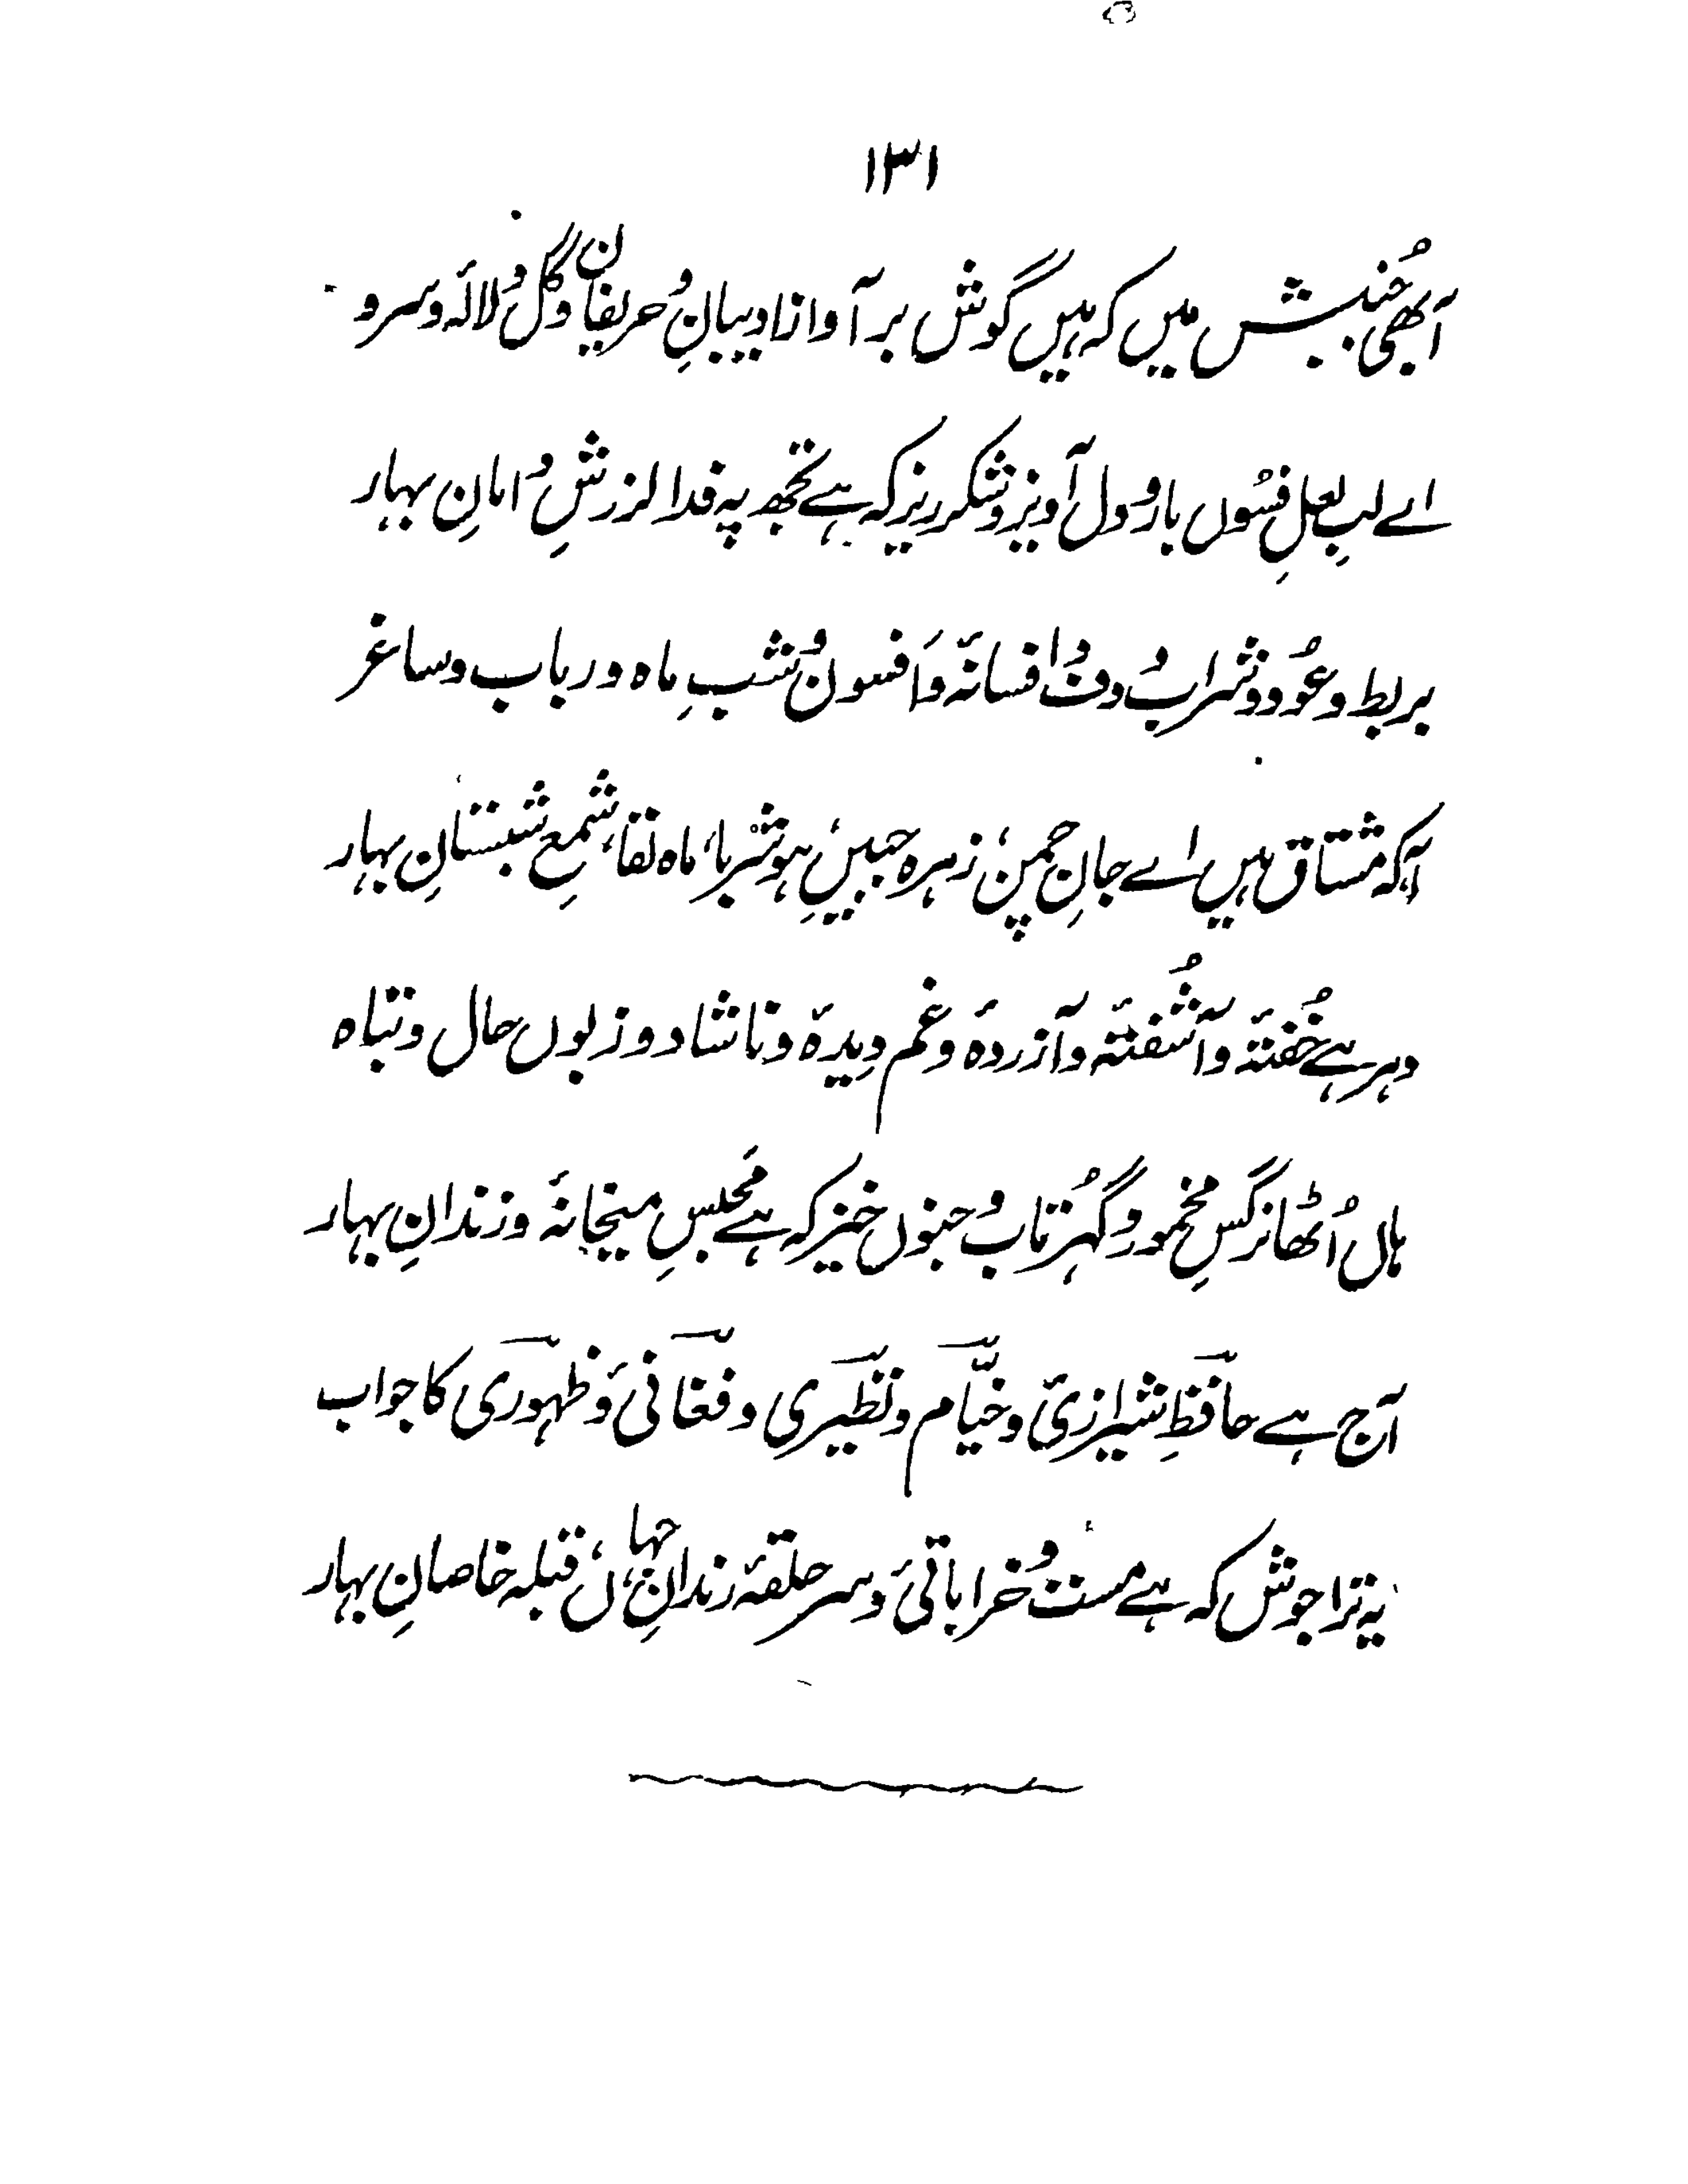 ۱۳۱
آ بھی جُنبش میں کہ ہیں گوش بر آواز ادیبانِ و حریفان و گل و لالہ و سرو
اے لبِ لعلِ فسُوں بار و دل آویز و شکر ریز کہ ہے تجھ پہ فدا لرزشِ امانِ بہار
بربط و عُود و شراب و دف و افسانہ و افسون و شبِ ماہ و رباب و ساغر
آ کہ مشتاق ہیں اے جانِ چمن، زہرہ جبیں، ہوشربا، ماہ لقا، شمعِ شبستانِ بہار
دہر ہے خُفتہ و آشُفتہ و آزردہ و غم دِیدہ و ناشاد و زبوں حال و تباہ
ہاں اُٹھا نرگسِ مخمور و گہُر تاب و جنوں خیز کہ ہے مجلسِ میخانہ و زندانِ بہار
آج ہے حافظِ شیرازی و خیّام و نظیری و فغانی و ظہوری کا جواب
یہ ترا جوش کہ ہے مست و خراباتی و سر حلقہ رندانِ جہاں، قبلہ خاصانِ بہار